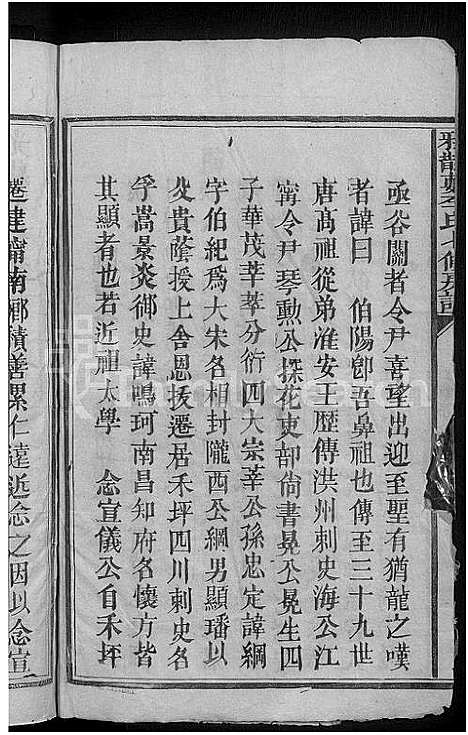 函谷關者令尹喜望出迎至聖有猶龍之嘆
者諱曰　伯陽卽吾鼻祖也傳至三十九世
唐高祖從弟淮安王歷傳洪州刺史海公江
寗令尹琴勲公探花吏部尙書晃公晃生四
子華茂莘萃分衍四大宗莘公孫忠定諱綱
字伯紀爲大宋名相封隴西公綱男顯璠以
父貴蔭授上舍恩拔遷居禾坪四川刺史名
孚嵩景炎御史諱鳴珂南昌知府名懷方皆
其顯者也若近祖太學　念宣儀公自禾坪
卷建甯南鄉積善累仁遠近念之因以念宣